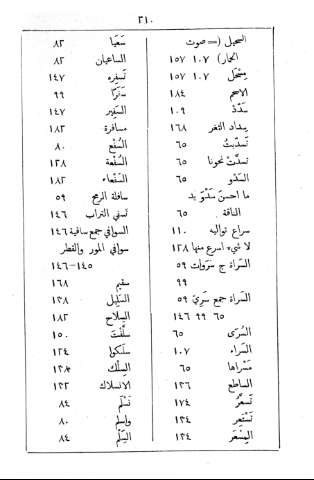 ٢١٠
السحيل (= صوت
الحمار) ١٠٧ ١٥٧
مِسْحَل ١٠٧ ١٥٧
الاسحم ١٨٤
سَدَدْ ١٠٩
سداد الثغر ١٦٨
تسدّيتُ ٦٥
تسدّتْ نحونا ٦٥
السَدْو ٦٥
ما احسن سَدْوَ يد
الناقة ٦٥
سراع تواليه ١١٠
لا شيء اسرع منها ١٢٨
السَراة ج سَرَوات ٥٩
٩٩
السَراة جمع سَرِيّ ٥٩
٦٥ ٩٩ ١٤٦
السُرَى ٦٥
السَراء ١٠٧
مَسْراها ٦٥
الساطع ١٢٦
تَسعَّرُ ١٧٤
تَسْتَعِر ١٣٤
المِسْعَر ١٣٤
سَعَيا ٨٢
الساعيان ٨٢
تَسفِره ١٤٧
سَفَرًا ٩٩
السَفِير ١٤٧
مسافرة ١٨٢
السُفْع ٨٠
السُفْعة ١٢٨
السَفْعاء ١٨٢
سافلة الرمح ٥٩
تَسفي التراب ١٤٦
السوافي جمع سافية ١٤٦
سوافي المور والقطر
١٤٥-١٤٦
سقيم ١٦٨
السَليل ١٣٨
السِلاح ١٨٢
سلَّفتَ ١٥٠
سلكوا ١٢٤
السِلْك ١٢٨
الانسلاك ١٢٢
تَسْلَم ٨٤
واسلم ٨٠
السِلْم ٨٤